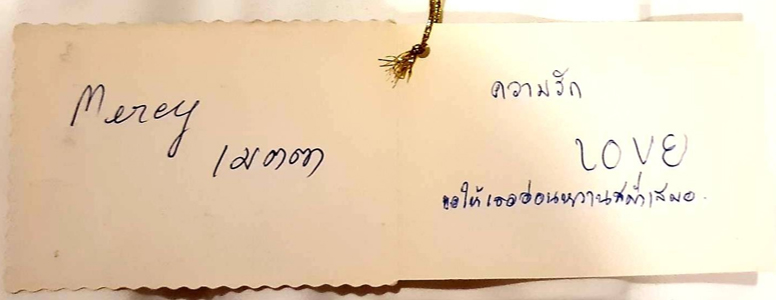 Mercy
เมตตา
ความรัก
LOVE
ขอให้เธออ่อนหวานสม่ำเสมอ.